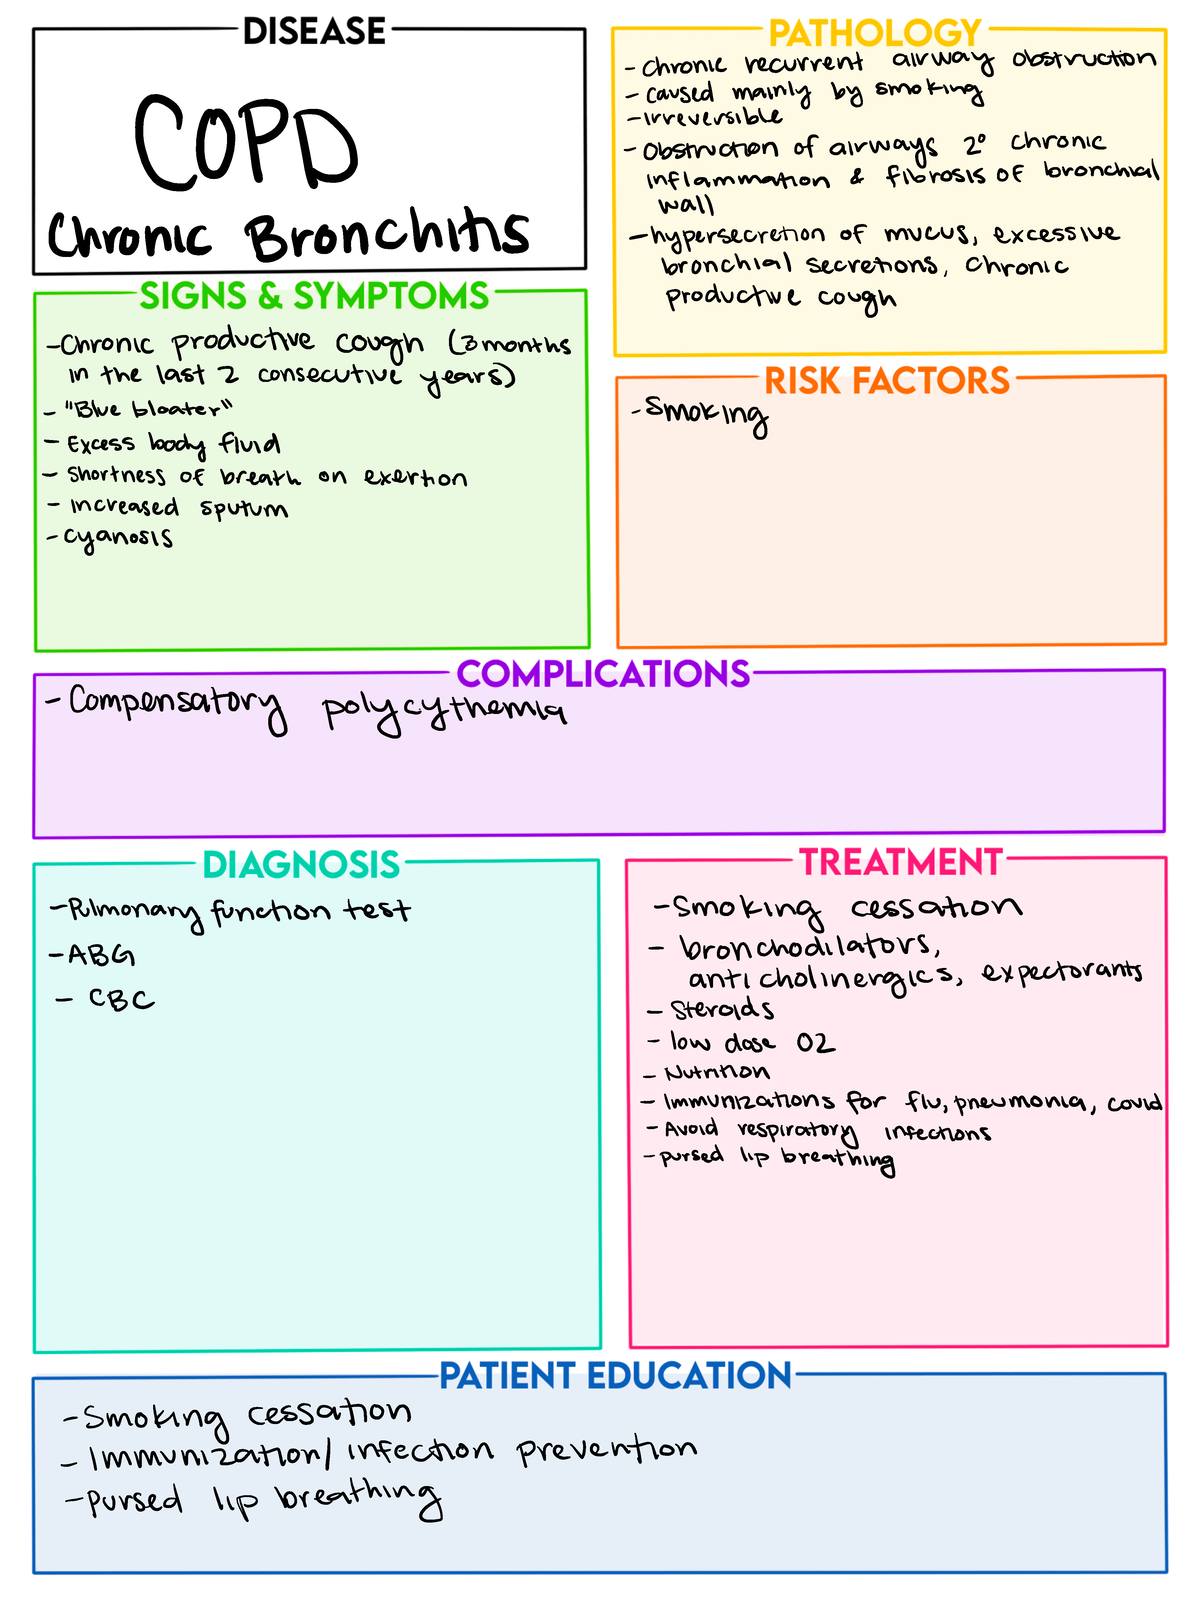 DISEASE
COPD
Chronic Bronchitis
PATHOLOGY
- chronic recurrent airway obstruction
- caused mainly by smoking
- irreversible
- obstruction of airways 2° chronic
inflammation & fibrosis of bronchial
wall
- hypersecretion of mucus, excessive
bronchial secretions, chronic
productive cough
SIGNS & SYMPTOMS
- Chronic productive cough (3 months
in the last 2 consecutive years)
- "Blue bloater"
- Excess body fluid
- Shortness of breath on exertion
- increased sputum
- cyanosis
RISK FACTORS
- Smoking
COMPLICATIONS
- Compensatory polycythemia
DIAGNOSIS
- Pulmonary function test
- ABG
- CBC
TREATMENT
- Smoking cessation
- bronchodilators,
anticholinergics, expectorants
- Steroids
- low dose O2
- Nutrition
- Immunizations for flu, pneumonia, covid
- Avoid respiratory infections
- pursed lip breathing
PATIENT EDUCATION
- Smoking cessation
- Immunization/infection prevention
- pursed lip breathing